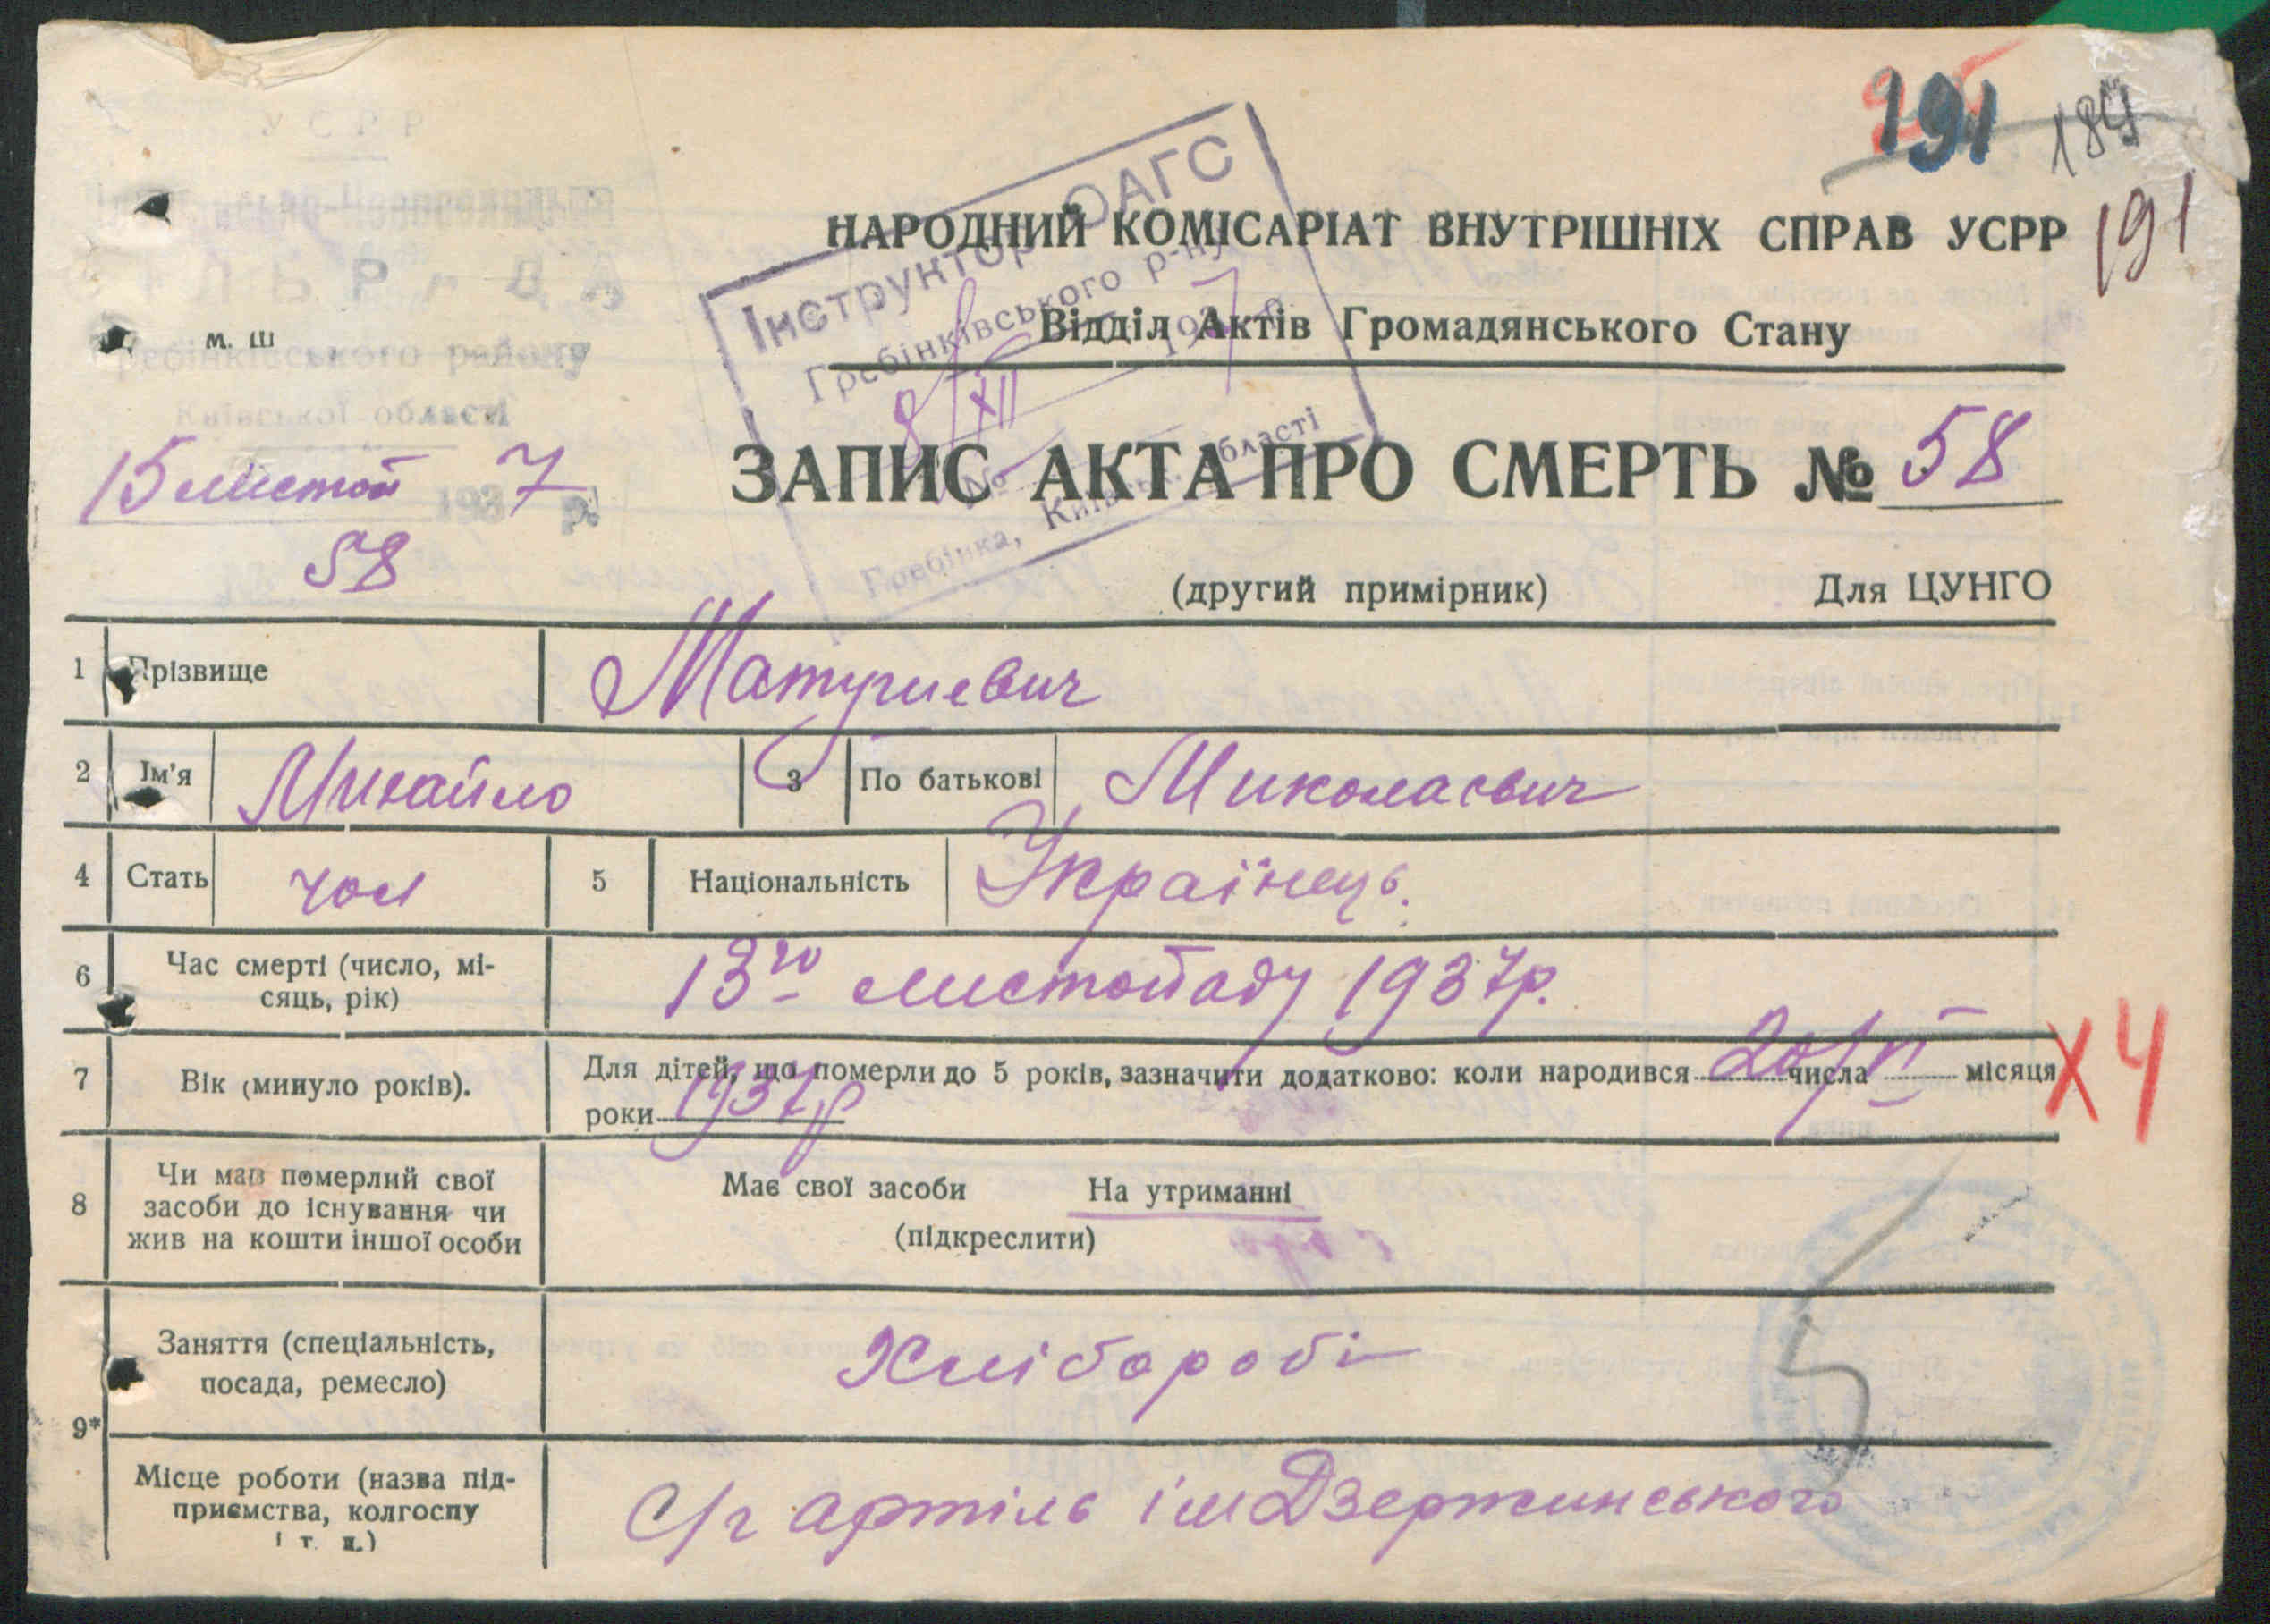 191
184
191
УСРР
СІЛЬРАДА
Гребінківського району
Київської області
м. Ш
15 листоп 1937 р.
58
Інструктор ОАГС
Гребінківського р-ну
8/XII 1937 р.
№
Гребінка, Київськ. області
НАРОДНИЙ КОМІСАРІАТ ВНУТРІШНІХ СПРАВ УСРР
Відділ Актів Громадянського Стану
ЗАПИС АКТА ПРО СМЕРТЬ № 58
(другий примірник) Для ЦУНГО
1 Прізвище Матушевич
2 Ім'я Михайло 3 По батькові Миколаєвич
4 Стать чол 5 Національність Українець.
6 Час смерті (число, мі-
сяць, рік) 13го листопаду 1937р.
7 Вік (минуло років). Для дітей, що померли до 5 років, зазначити додатково: коли народився 20/VI числа місяця
роки 1937р
Х 4
8 Чи мав померлий свої
засоби до існування чи
жив на кошти іншої особи
Має свої засоби На утриманні
(підкреслити)
9*
Заняття (спеціальність,
посада, ремесло) Хлібороби
5
Місце роботи (назва під-
приємства, колгоспу
і т. д.) С/г артіль ім Дзержинського